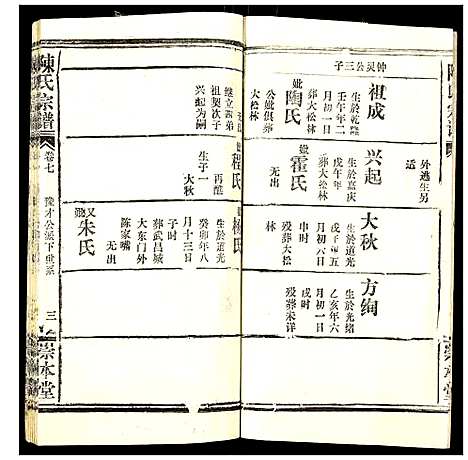 钟灵公三子
祖成
生於乾隆
壬午年二
月初一日
葬大松林
妣陶氏
公妣俱葬
大松林
继立胞弟
祖契次子
兴起为嗣
兴起
生於嘉庆
戊午年
葬大松林
妣霍氏
无出
程氏
再醮
生子一
大秋
外逃生男
适
大秋
生於道光
甲午年五
月初六日
申时
殁葬大松
林
杨氏
生於道光
癸卯年八
月十三日
子时
葬武昌城
大东门外
陈家嘴
无出
又妣朱氏
方绚
生於光绪
乙亥年六
月初一日
戌时
殁葬未详
陳氏宗譜
卷七
豫才公派下世系
三
崇本堂